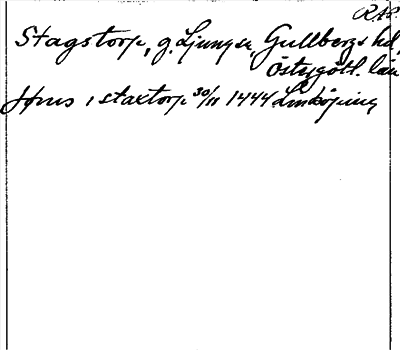 R.A.P.
Stagstorp, g. Ljunga, Gullbergs hd,
Östergötl. län
Jöns i staxtorp 30/11 1444 Linköping